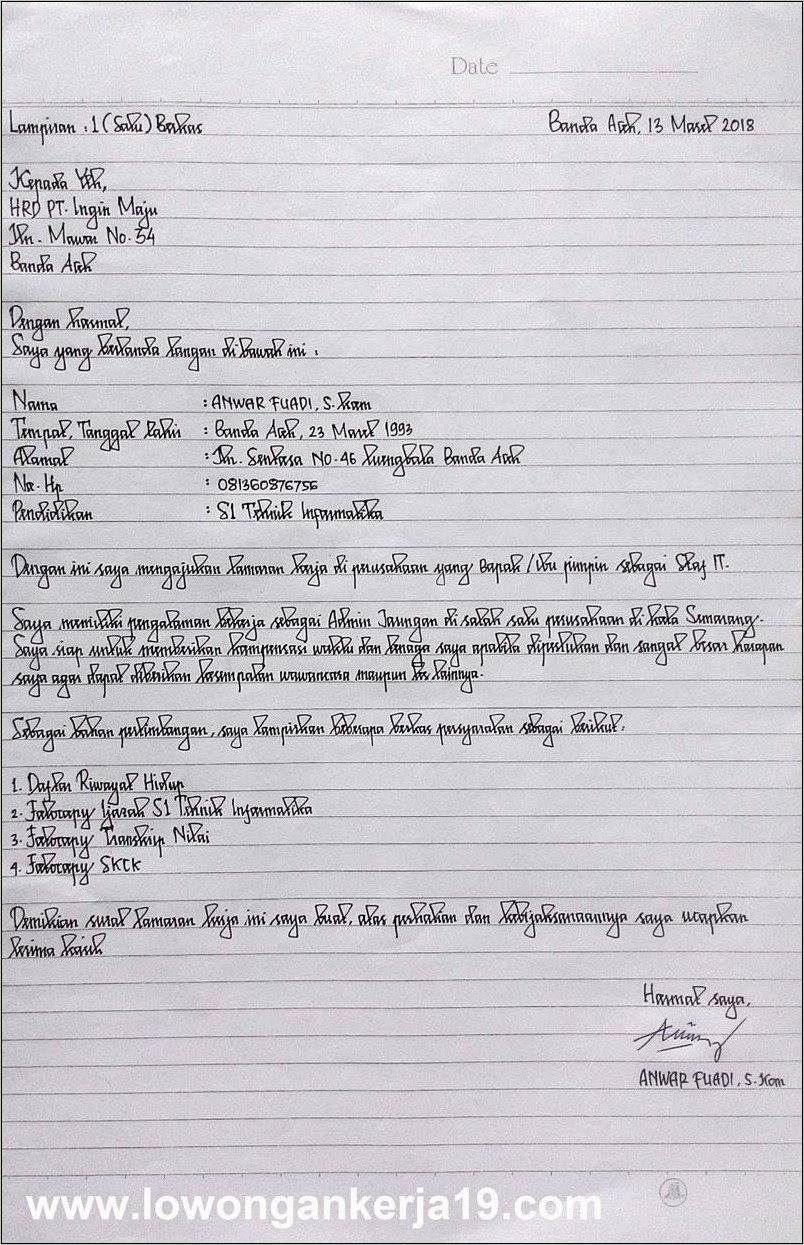 Date
Lampiran : 1 (Satu) Berkas Banda Aceh, 13 Maret 2018
Kepada Yth,
HRD PT. Ingin Maju
Jln. Mawar No. 54
Banda Aceh
Dengan hormat,
Saya yang bertanda tangan di bawah ini :
Nama : ANWAR FUADI, S.Kom
Tempat, Tanggal Lahir : Banda Aceh, 23 Maret 1993
Alamat : Jln. Sentosa No. 46 Luengbata Banda Aceh
No. Hp : 081360876756
Pendidikan : S1 Teknik Informatika
Dengan ini saya mengajukan lamaran kerja di perusahaan yang Bapak / Ibu pimpin sebagai Staf IT.
Saya memiliki pengalaman bekerja sebagai Admin Jaringan di salah satu perusahaan di kota Semarang.
Saya siap untuk memberikan kompensasi waktu dan tenaga saya apabila diperlukan dan sangat besar harapan
saya agar dapat diberikan kesempatan wawancara maupun tes lainnya.
Sebagai bahan pertimbangan, saya lampirkan beberapa berkas persyaratan sebagai berikut :
1. Daftar Riwayat Hidup
2. Fotocopy Ijazah S1 Teknik Informatika
3. Fotocopy Transkip Nilai
4. Fotocopy SKCK
Demikian surat lamaran kerja ini saya buat, atas perhatian dan kebijaksanaannya saya ucapkan
terima kasih
Hormat saya,
ANWAR FUADI, S.Kom
www.lowongankerja19.com